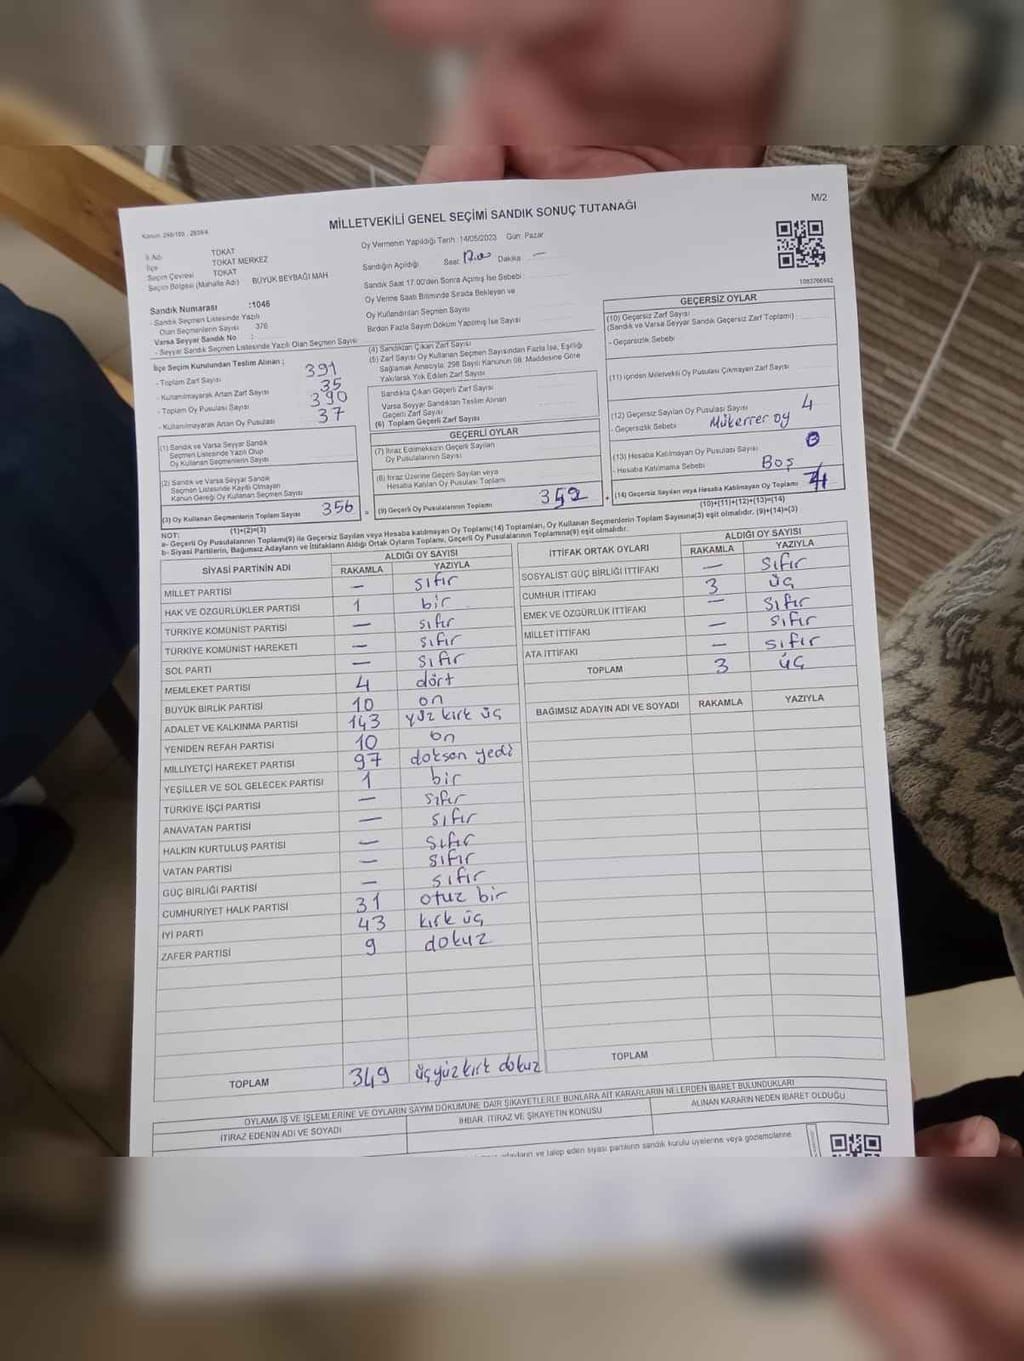 MİLLETVEKİLİ GENEL SEÇİMİ SANDIK SONUÇ TUTANAĞI
M/2
İl Adı TOKAT
İlçe TOKAT MERKEZ
Seçim Çevresi TOKAT
Seçim Bölgesi (Mahalle Adı) BÜYÜK BEYBAĞI MAH
Oy Vermenin Yapıldığı Tarih :14/05/2023 Gün: Pazar
Sandığın Açıldığı Saat: Dakika —
Sandık Saat 17:00'den Sonra Açılmış İse Sebebi
Oy Verme Saati Bitiminde Sırada Bekleyen ve
Oy Kullandırılan Seçmen Sayısı
Birden Fazla Sayım Döküm Yapılmış İse Sayısı
Sandık Numarası :1046
- Sandık Seçmen Listesinde Yazılı
Olan Seçmenlerin Sayısı 376
Varsa Seyyar Sandık No :
- Seyyar Sandık Seçmen Listesinde Yazılı Olan Seçmen Sayısı
İlçe Seçim Kurulundan Teslim Alınan ;
- Toplam Zarf Sayısı 391
- Kullanılmayarak Artan Zarf Sayısı 35
- Toplam Oy Pusulası Sayısı 390
- Kullanılmayarak Artan Oy Pusulası 37
(1) Sandık ve Varsa Seyyar Sandık
Seçmen Listesinde Yazılı Olup
Oy Kullanan Seçmenlerin Sayısı
(2) Sandık ve Varsa Seyyar Sandık
Seçmen Listesinde Kaydı Olmayan
Kanun Gereği Oy Kullanan Seçmen Sayısı
(3) Oy Kullanan Seçmenlerin Toplam Sayısı 356
(1)+(2)=(3)
(4) Sandıktan Çıkan Zarf Sayısı
(5) Zarf Sayısı Oy Kullanan Seçmen Sayısından Fazla İse, Eşitliği
Sağlamak Amacıyla, 298 Sayılı Kanunun 98. Maddesine Göre
Yakılarak Yok Edilen Zarf Sayısı
Sandıkta Çıkan Geçerli Zarf Sayısı
Varsa Seyyar Sandıktan Teslim Alınan
Geçerli Zarf Sayısı
(6) Toplam Geçerli Zarf Sayısı
GEÇERLİ OYLAR
(7) İtiraz Edilmeksizin Geçerli Sayılan
Oy Pusulalarının Sayısı
(8) İtiraz Üzerine Geçerli Sayılan veya
Hesaba Katılan Oy Pusulası Toplamı
(9) Geçerli Oy Pusulalarının Toplamı 352
1083706662
GEÇERSİZ OYLAR
(10) Geçersiz Zarf Sayısı
(Sandık ve Varsa Seyyar Sandık Geçersiz Zarf Toplamı) :
- Geçersizlik Sebebi
(11) İçinden Milletvekili Oy Pusulası Çıkmayan Zarf Sayısı
(12) Geçersiz Sayılan Oy Pusulası Sayısı 4
- Geçersizlik Sebebi Mükerrer oy
(13) Hesaba Katılmayan Oy Pusulası Sayısı
- Hesaba Katılmama Sebebi Boş
(14) Geçersiz Sayılan veya Hesaba Katılmayan Oy Toplamı
(10)+(11)+(12)+(13)=(14)
NOT:
a- Geçerli Oy Pusulalarının Toplamı(9) ile Geçersiz Sayılan veya Hesaba katılmayan Oy Toplamı(14) Toplamları, Oy Kullanan Seçmenlerin Toplam Sayısına(3) eşit olmalıdır. (9)+(14)=(3)
b- Siyasi Partilerin, Bağımsız Adayların ve İttifakların Aldığı Ortak Oyların Toplamı, Geçerli Oy Pusulalarının Toplamına(9) eşit olmalıdır.
SİYASİ PARTİNİN ADI ALDIĞI OY SAYISI
RAKAMLA YAZIYLA
MİLLET PARTİSİ — sıfır
HAK VE ÖZGÜRLÜKLER PARTİSİ 1 bir
TÜRKİYE KOMÜNİST PARTİSİ — sıfır
TÜRKİYE KOMÜNİST HAREKETİ — sıfır
SOL PARTİ — sıfır
MEMLEKET PARTİSİ 4 dört
BÜYÜK BİRLİK PARTİSİ 10 on
ADALET VE KALKINMA PARTİSİ 143 yüz kırk üç
YENİDEN REFAH PARTİSİ 10 on
MİLLİYETÇİ HAREKET PARTİSİ 97 doksan yedi
YEŞİLLER VE SOL GELECEK PARTİSİ 1 bir
TÜRKİYE İŞÇİ PARTİSİ — sıfır
ANAVATAN PARTİSİ — sıfır
HALKIN KURTULUŞ PARTİSİ — sıfır
VATAN PARTİSİ — sıfır
GÜÇ BİRLİĞİ PARTİSİ — sıfır
CUMHURİYET HALK PARTİSİ 31 otuz bir
İYİ PARTİ 43 kırk üç
ZAFER PARTİSİ 9 dokuz
TOPLAM 349 üçyüzkırk dokuz
İTTİFAK ORTAK OYLARI ALDIĞI OY SAYISI
RAKAMLA YAZIYLA
SOSYALİST GÜÇ BİRLİĞİ İTTİFAKI — sıfır
CUMHUR İTTİFAKI 3 üç
EMEK VE ÖZGÜRLÜK İTTİFAKI — sıfır
MİLLET İTTİFAKI — sıfır
ATA İTTİFAKI — sıfır
TOPLAM 3 üç
BAĞIMSIZ ADAYIN ADI VE SOYADI RAKAMLA YAZIYLA
TOPLAM
OYLAMA İŞ VE İŞLEMLERİNE VE OYLARIN SAYIM DÖKÜMÜNE DAİR ŞİKAYETLERLE BUNLARA AİT KARARLARIN NELERDEN İBARET BULUNDUKLARI
İTİRAZ EDENİN ADI VE SOYADI İHBAR, İTİRAZ VE ŞİKAYETİN KONUSU ALINAN KARARIN NEDEN İBARET OLDUĞU
adayların ve talep eden siyasi partilerin sandık kurulu üyelerine veya gözlemcilerine